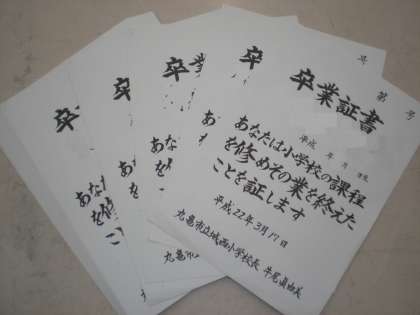 号 第 号
卒業証書
平成 年 月 日生
あなたは小学校の課程
を修めその業を終えた
ことを証します
平成22年3月17日
丸亀市立城西小学校長 牛尾眞由美
卒
卒業
あな
を修
丸亀市立
卒
あ
を
卒
あなた
を修
こ